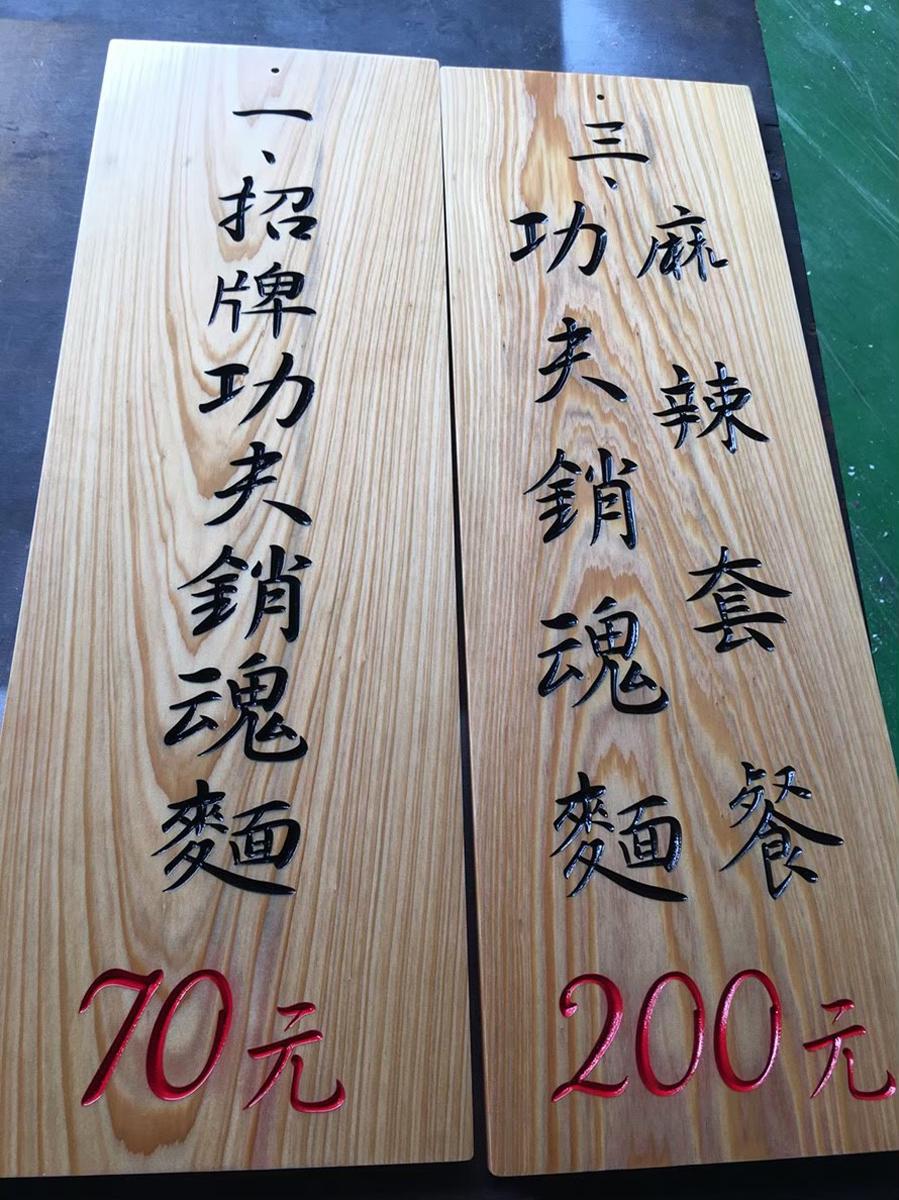 一、招牌功夫銷魂麵
70元
三、
麻辣套餐
功夫銷魂麵
200元